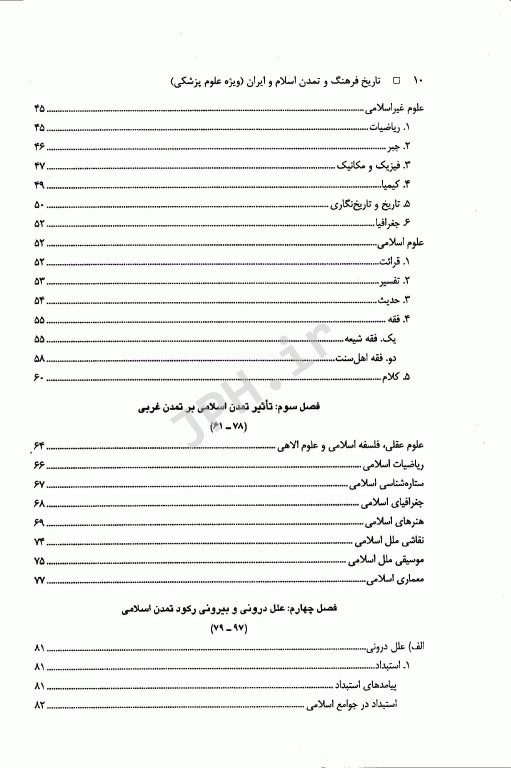 ۱۰ □ تاریخ فرهنگ و تمدن اسلام و ایران (ویژه علوم پزشکی)
علوم غیراسلامی ........ ۴۵
۱. ریاضیات ........ ۴۵
۲. جبر ........ ۴۶
۳. فیزیک و مکانیک ........ ۴۷
۴. کیمیا ........ ۴۹
۵. تاریخ و تاریخ‌نگاری ........ ۵۰
۶. جغرافیا ........ ۵۲
علوم اسلامی ........ ۵۲
۱. قرائت ........ ۵۲
۲. تفسیر ........ ۵۳
۳. حدیث ........ ۵۴
۴. فقه ........ ۵۵
یک. فقه شیعه ........ ۵۵
دو. فقه اهل‌سنت ........ ۵۸
۵. کلام ........ ۶۰
فصل سوم: تأثیر تمدن اسلامی بر تمدن غربی
(۷۸ ـ ۶۱)
علوم عقلی، فلسفه اسلامی و علوم الاهی ........ ۶۴
ریاضیات اسلامی ........ ۶۶
ستاره‌شناسی اسلامی ........ ۶۷
جغرافیای اسلامی ........ ۶۸
هنرهای اسلامی ........ ۶۹
نقاشی ملل اسلامی ........ ۷۴
موسیقی ملل اسلامی ........ ۷۵
معماری اسلامی ........ ۷۷
فصل چهارم: علل درونی و بیرونی رکود تمدن اسلامی
(۹۷ ـ ۷۹)
الف) علل درونی ........ ۸۱
۱ـ استبداد ........ ۸۱
پیامدهای استبداد ........ ۸۱
استبداد در جوامع اسلامی ........ ۸۲
JPH.ir